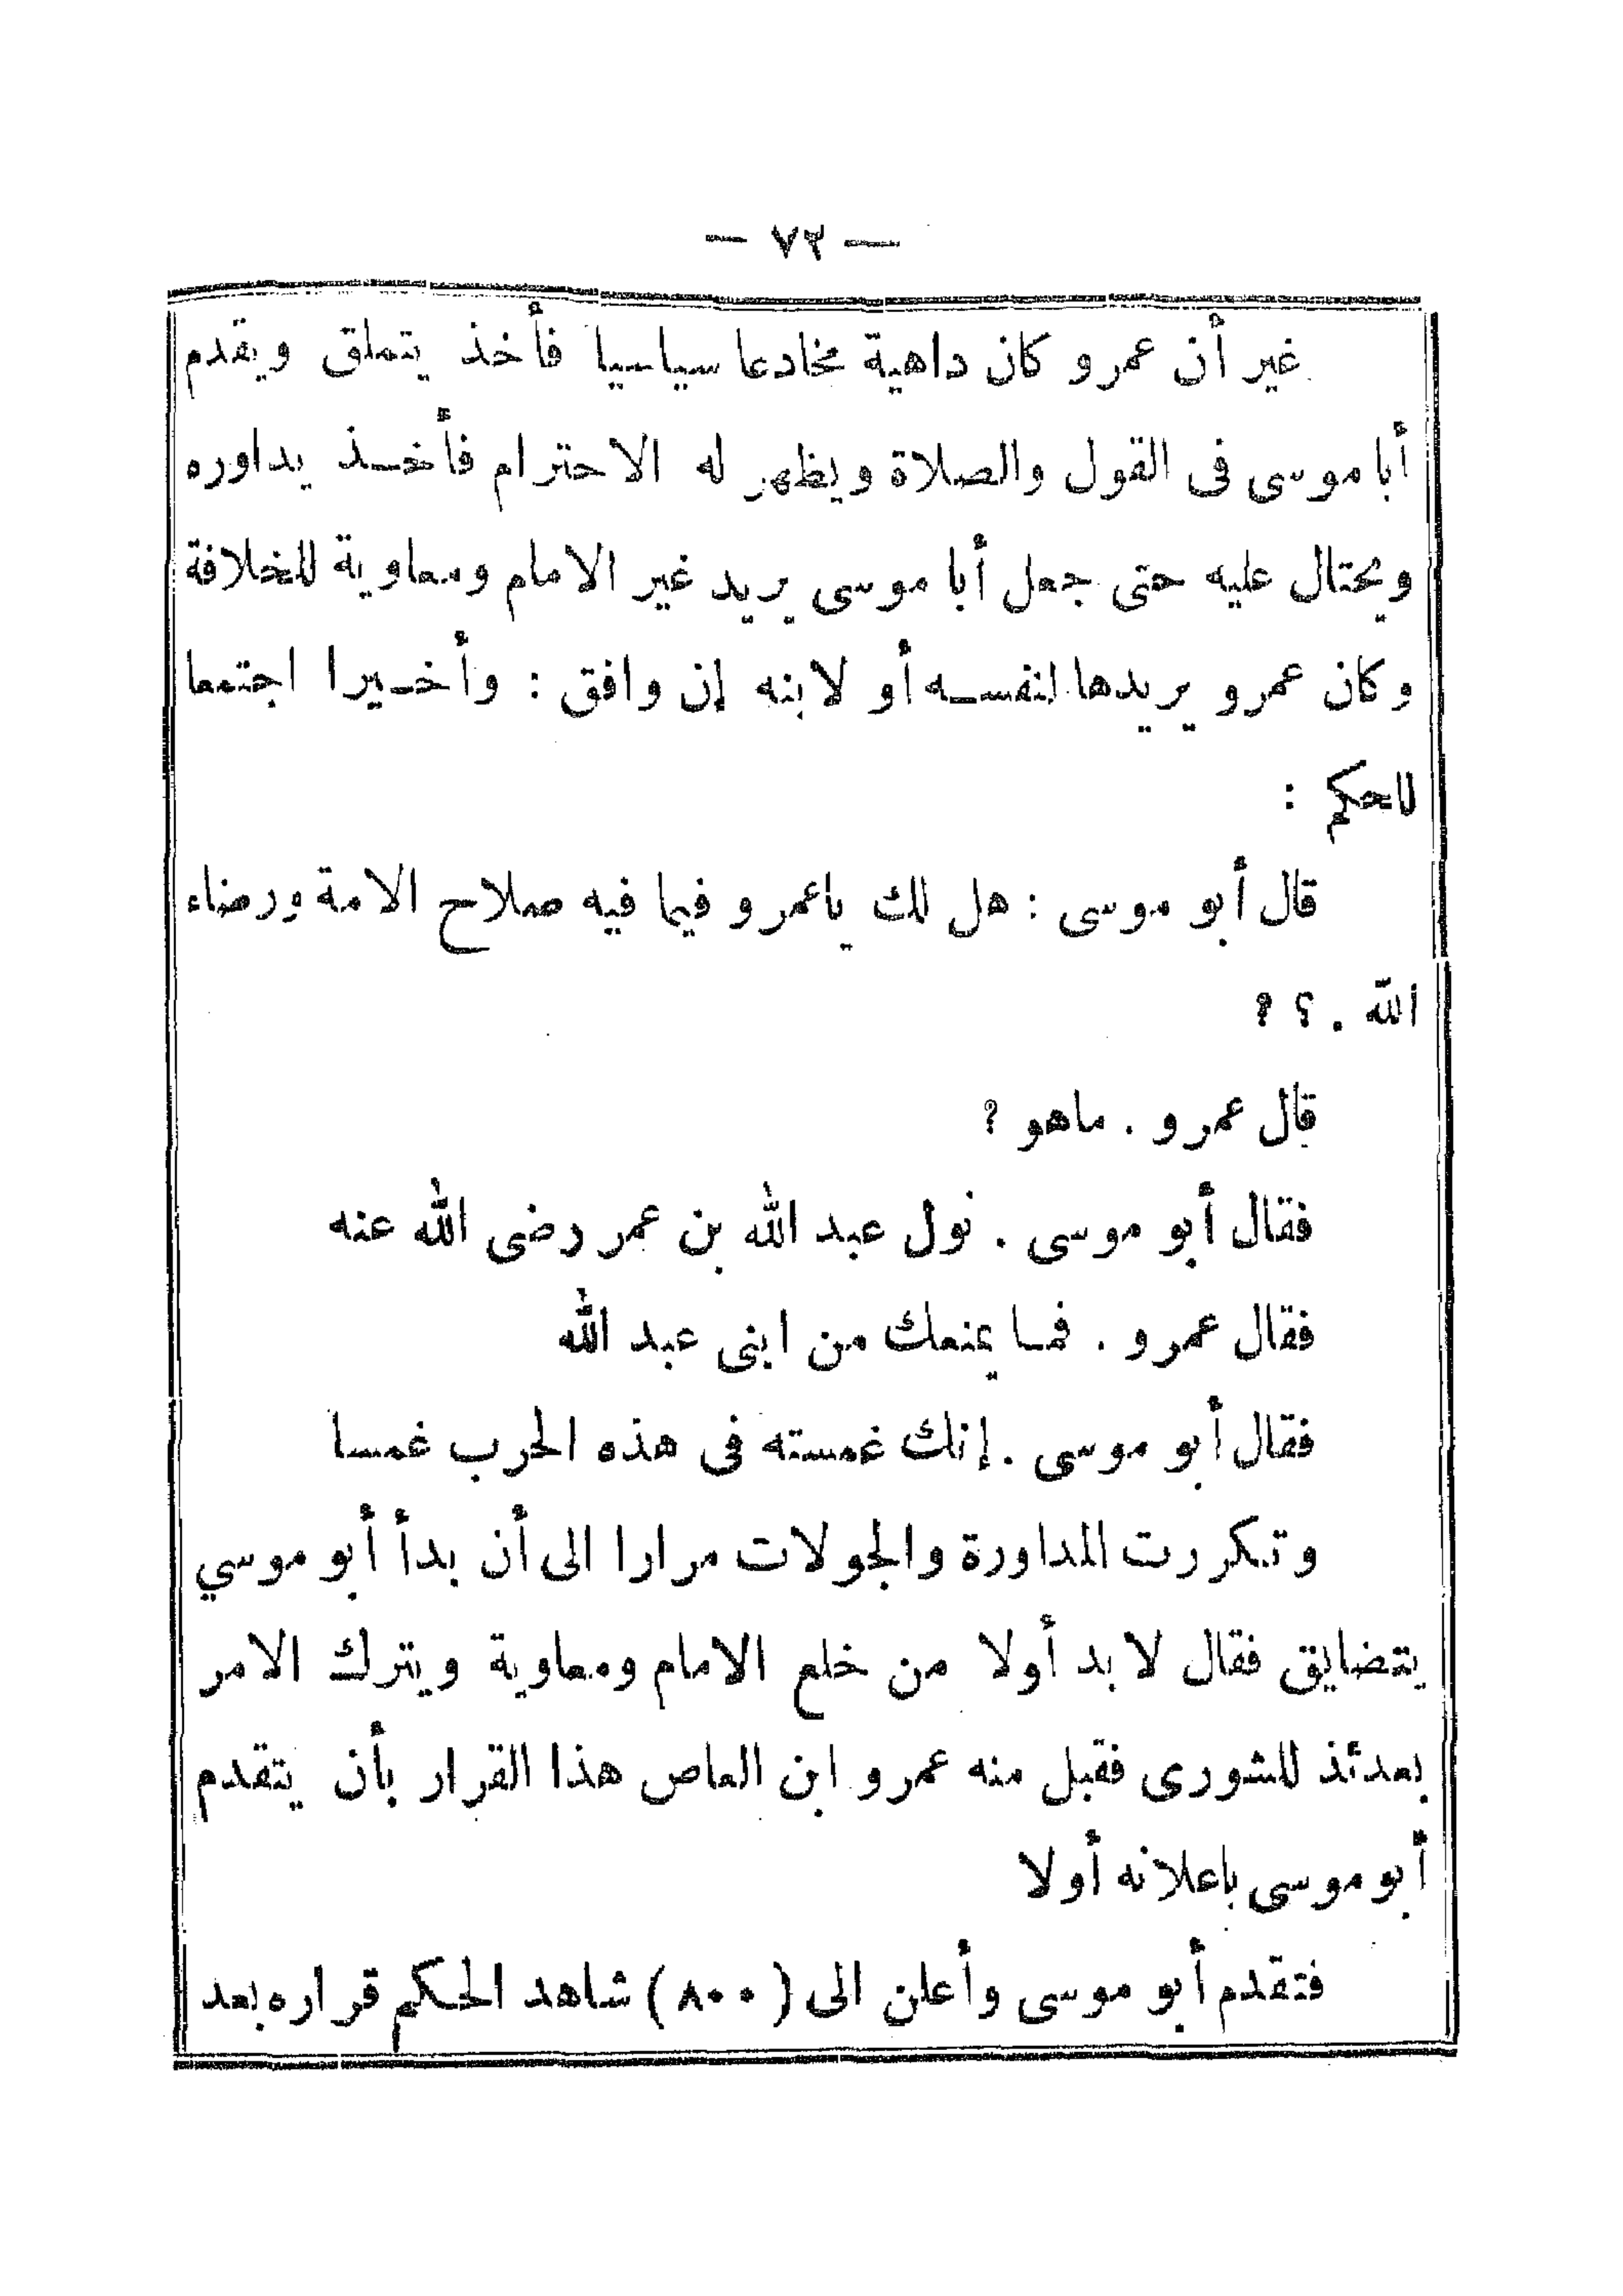 — ٧٣ —
غير أن عمرو كان داهية مخادعا سياسيا فأخذ يتملق ويقدم
أبا موسى فى القول والصلاة ويظهر له الاحترام فأخذ يداوره
ويحتال عليه حتى جعل أبا موسى يريد غير الامام ومعاوية للخلافة
وكان عمرو يريدها لنفسه أو لابنه إن وافق : وأخيرا اجتمعا
للحكم :
قال أبو موسى : هل لك ياعمرو فيما فيه صلاح الامة ورضاء
الله . ؟ ?
قال عمرو . ماهو ?
فقال أبو موسى . نول عبد الله بن عمر رضى الله عنه
فقال عمرو . فما يمنعك من ابنى عبد الله
فقال أبو موسى . إنك غمسته فى هذه الحرب غمسا
وتكررت المداورة والجولات مرارا الى أن بدأ أبو موسي
يتضايق فقال لا بد أولا من خلع الامام ومعاوية ويترك الامر
بعدئذ للشورى فقبل منه عمرو ابن العاص هذا القرار بأن يتقدم
أبو موسى باعلانه أولا
فتقدم أبو موسى وأعلن الى ( ٨٠٠ ) شاهد الحكم قراره بعد